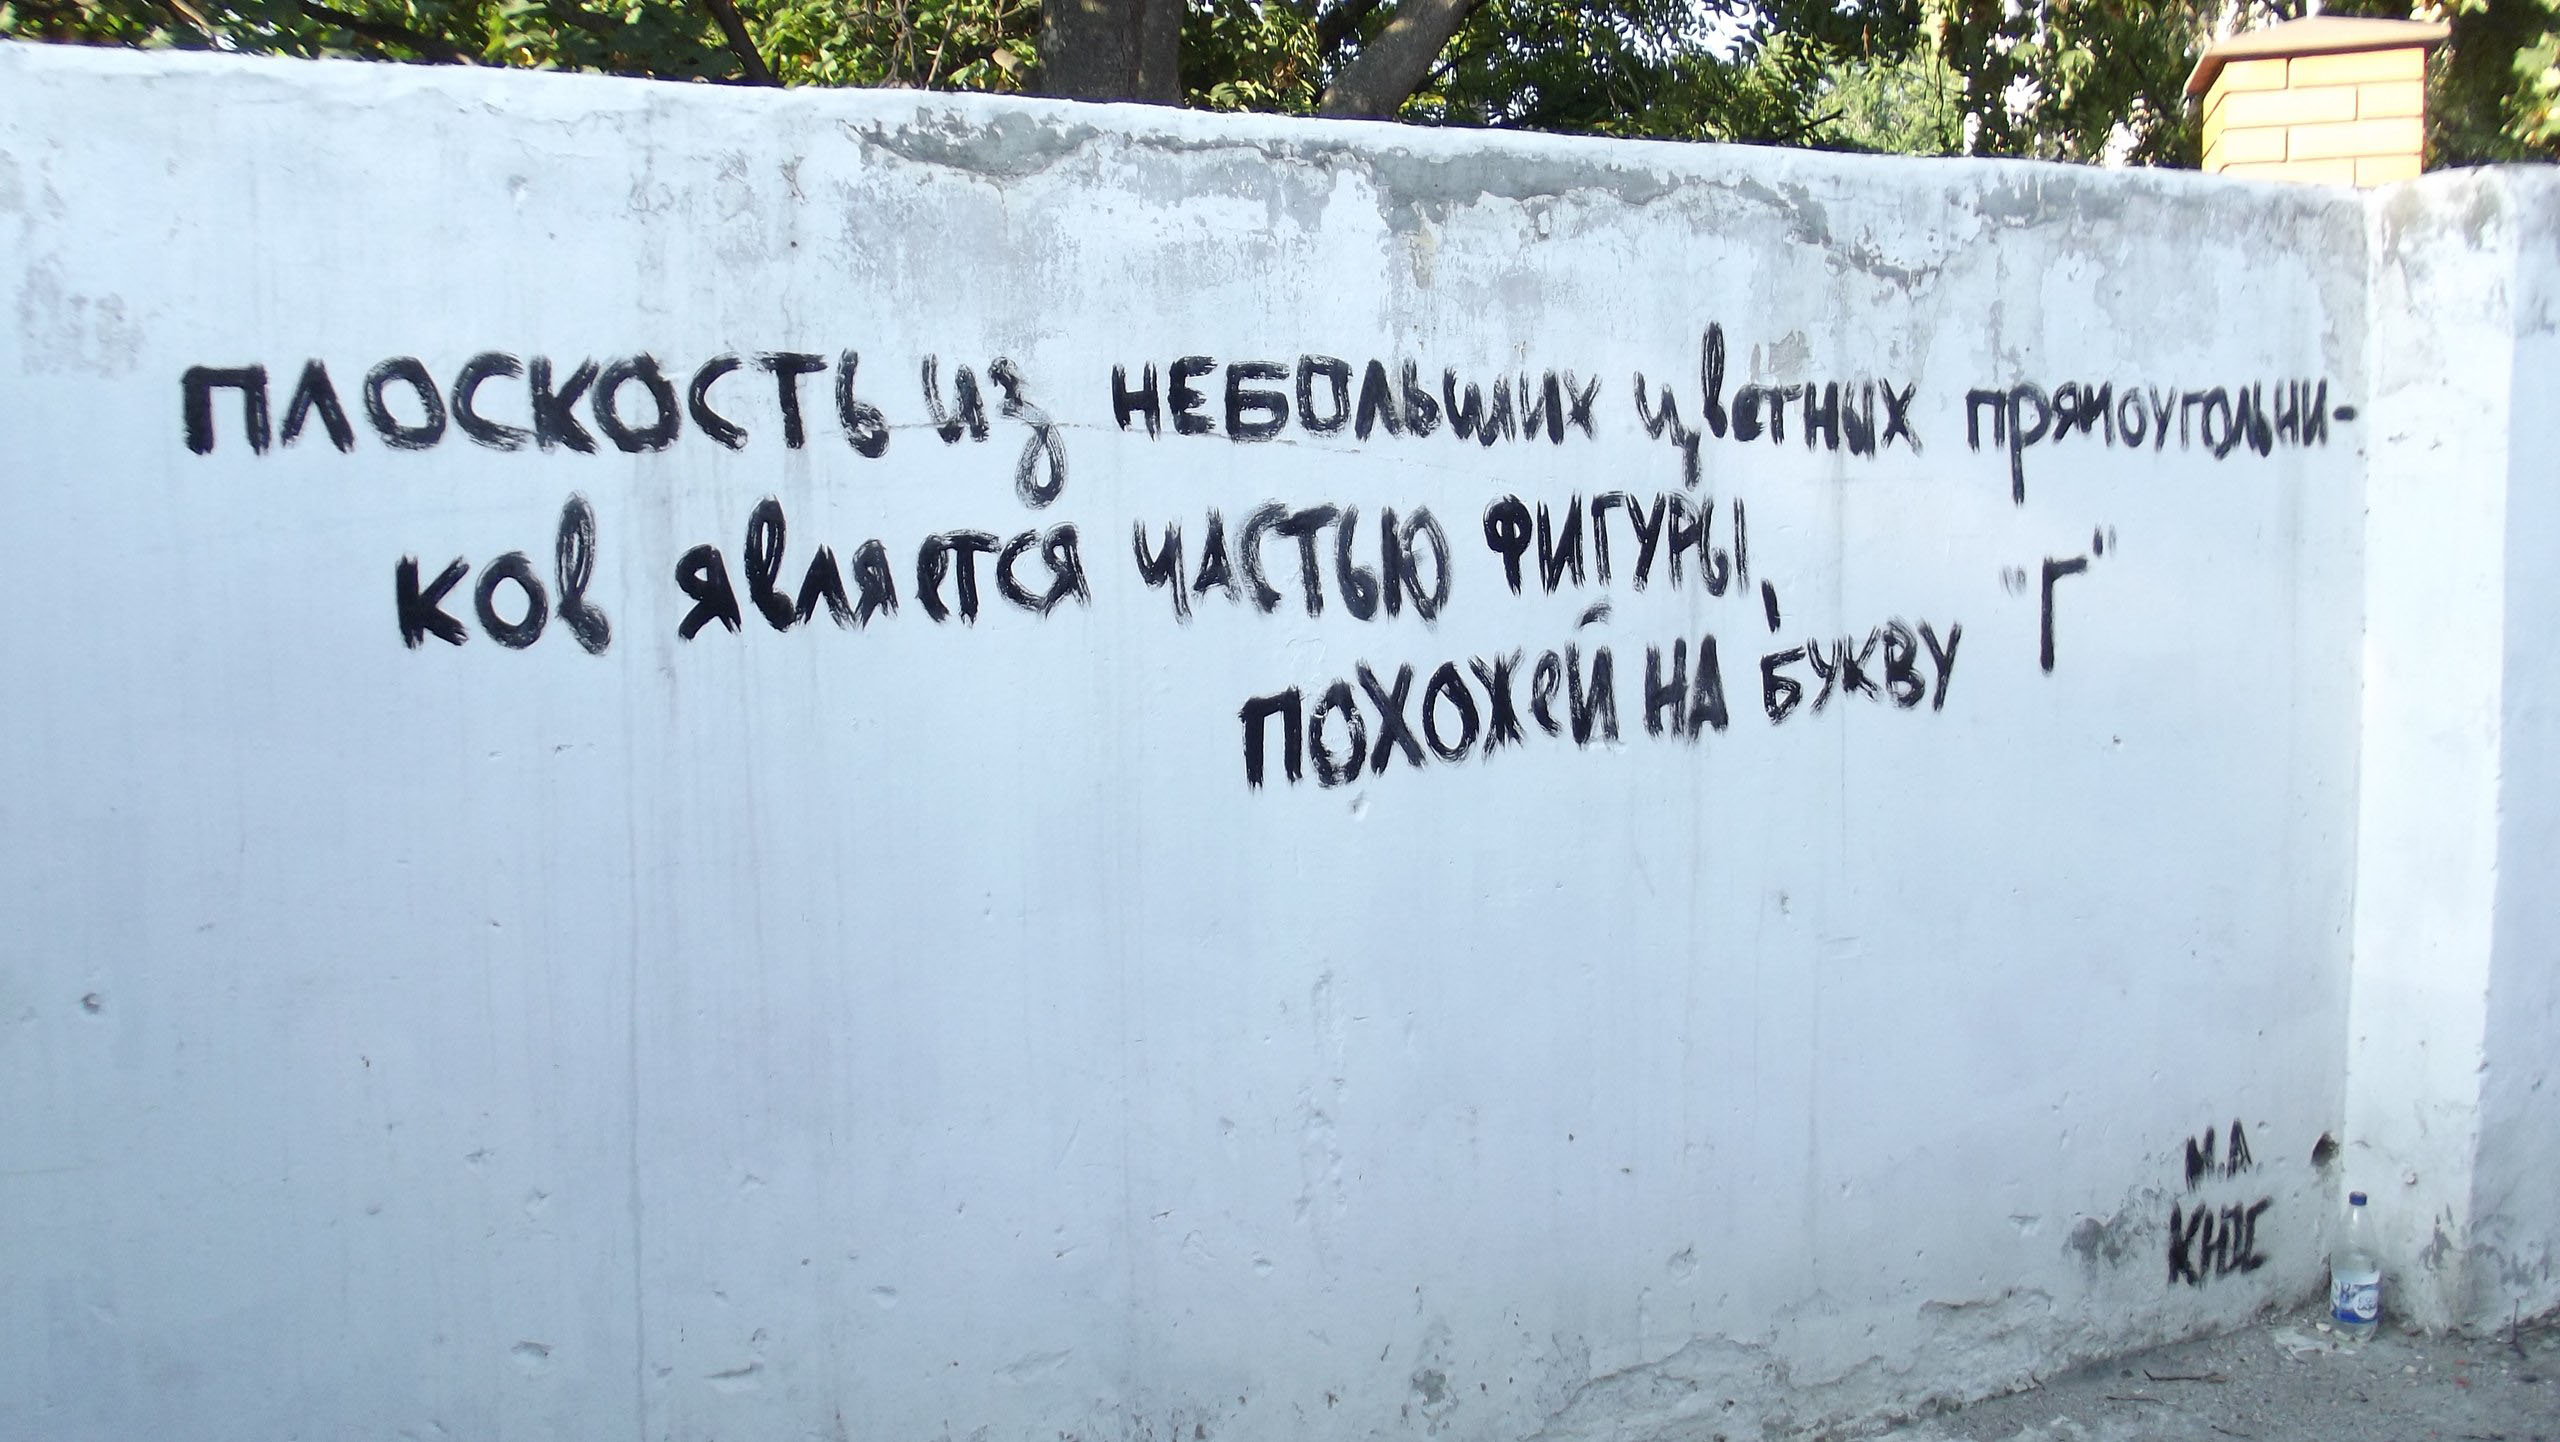 ПЛОСКОСТЬ ИЗ НЕБОЛЬШИХ ЦВЕТНЫХ ПРЯМОУГОЛЬНИ-
КОВ ЯВЛЯЕТСЯ ЧАСТЬЮ ФИГУРЫ,
ПОХОЖЕЙ НА БУКВУ "Г"
М.А.